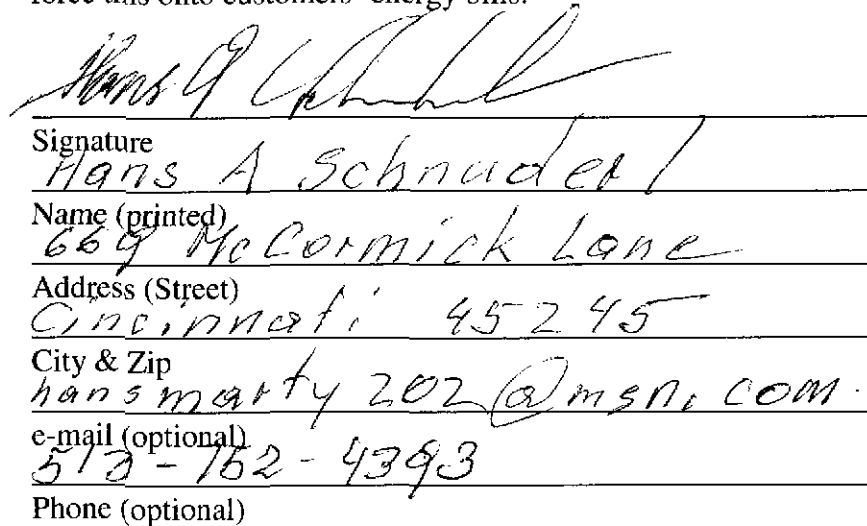 force this onto customers' energy bills.
Signature
Hans A Schnaderl
Name (printed)
669 McCormick Lane
Address (Street)
Cincinnati 45245
City & Zip
hansmarty202@msn.com
e-mail (optional)
513-752-4393
Phone (optional)